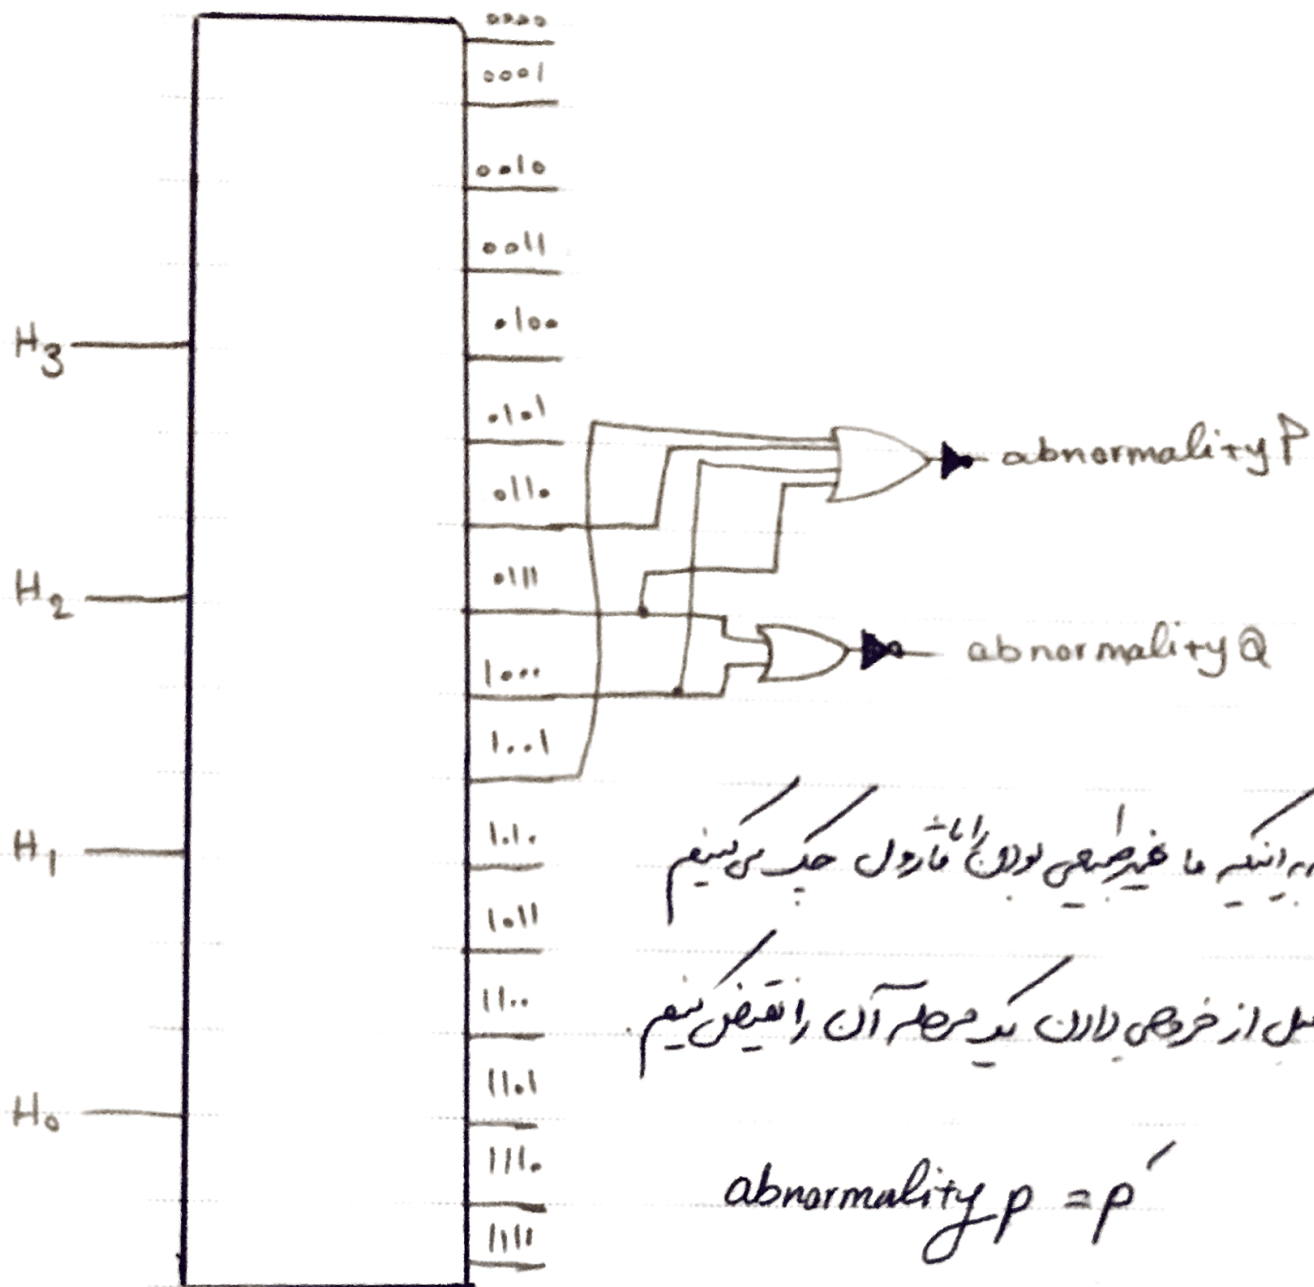 0000
0001
0010
0011
0100
0101
0110
0111
1000
1001
1010
1011
1100
1101
1110
1111
H3
H2
H1
H0
abnormality P
abnormality Q
اینکه ما غیرطبیعی بودن را چک می‌کنیم
از خروجی دادن یک مرحله آن را نقیض کنیم.
abnormality p = p′